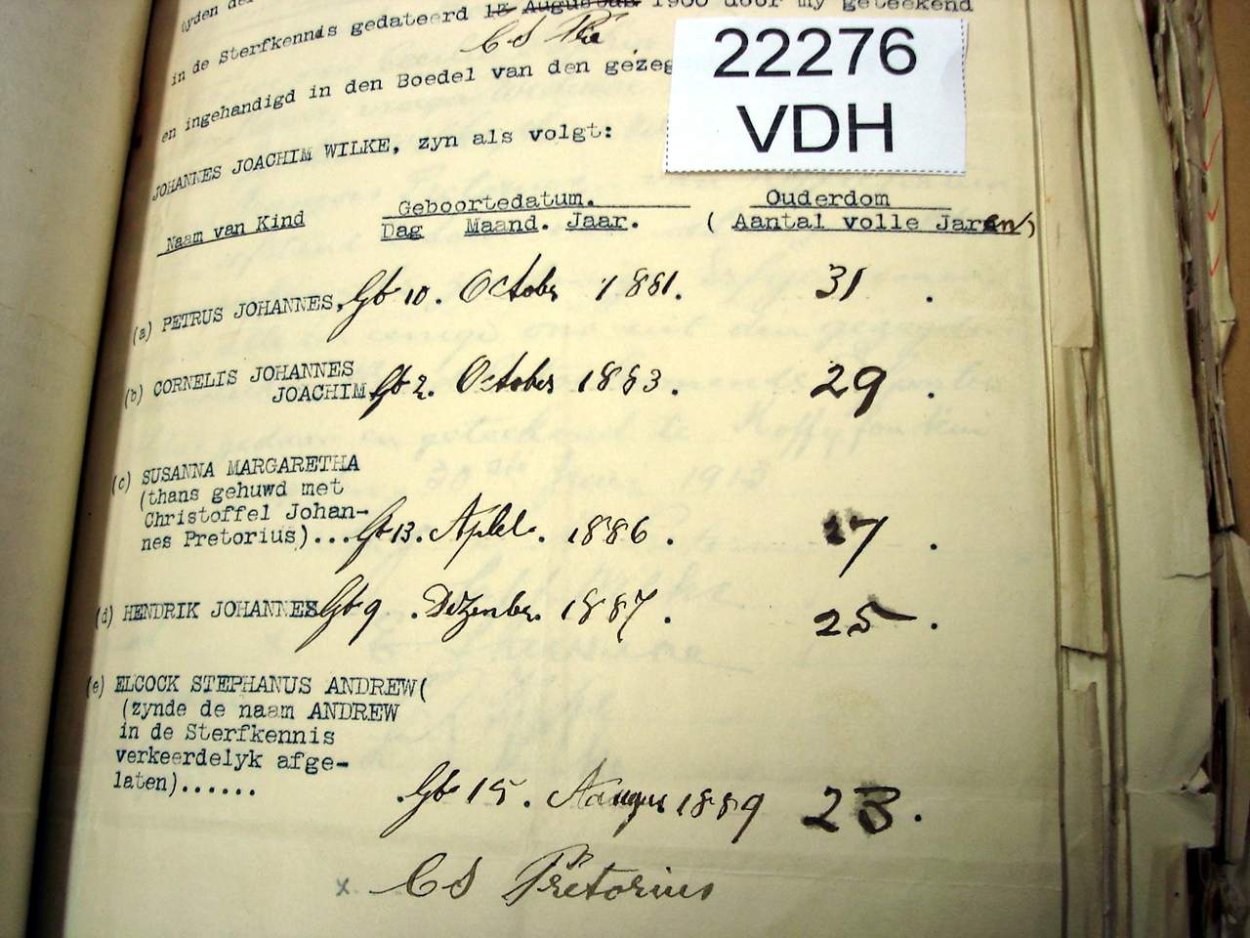 tyden de
in de Sterfkennis gedateerd 15 Augustus 1900 door my geteekend
C S Pre
en ingehandigd in den Boedel van den gezeg
22276
VDH
JOHANNES JOACHIM WILKE, zyn als volgt:
Naam van Kind Geboortedatum. Ouderdom
Dag Maand. Jaar. ( Aantal volle Jaren)
(a) PETRUS JOHANNES, Gb 10. October 1881. 31 .
(b) CORNELIS JOHANNES
JOACHIM Gb 2. October 1883. 29 .
(c) SUSANNA MARGARETHA
(thans gehuwd met
Christoffel Johan-
nes Pretorius)... Gb 13. April. 1886. 27 .
(d) HENDRIK JOHANNES Gb 9 . Dezember 1887. 25 .
(e) ELCOCK STEPHANUS ANDREW(
(zynde de naam ANDREW
in de Sterfkennis
verkeerdelyk afge-
laten)......
Gb 15. 1889 23.
x C S Pretorius